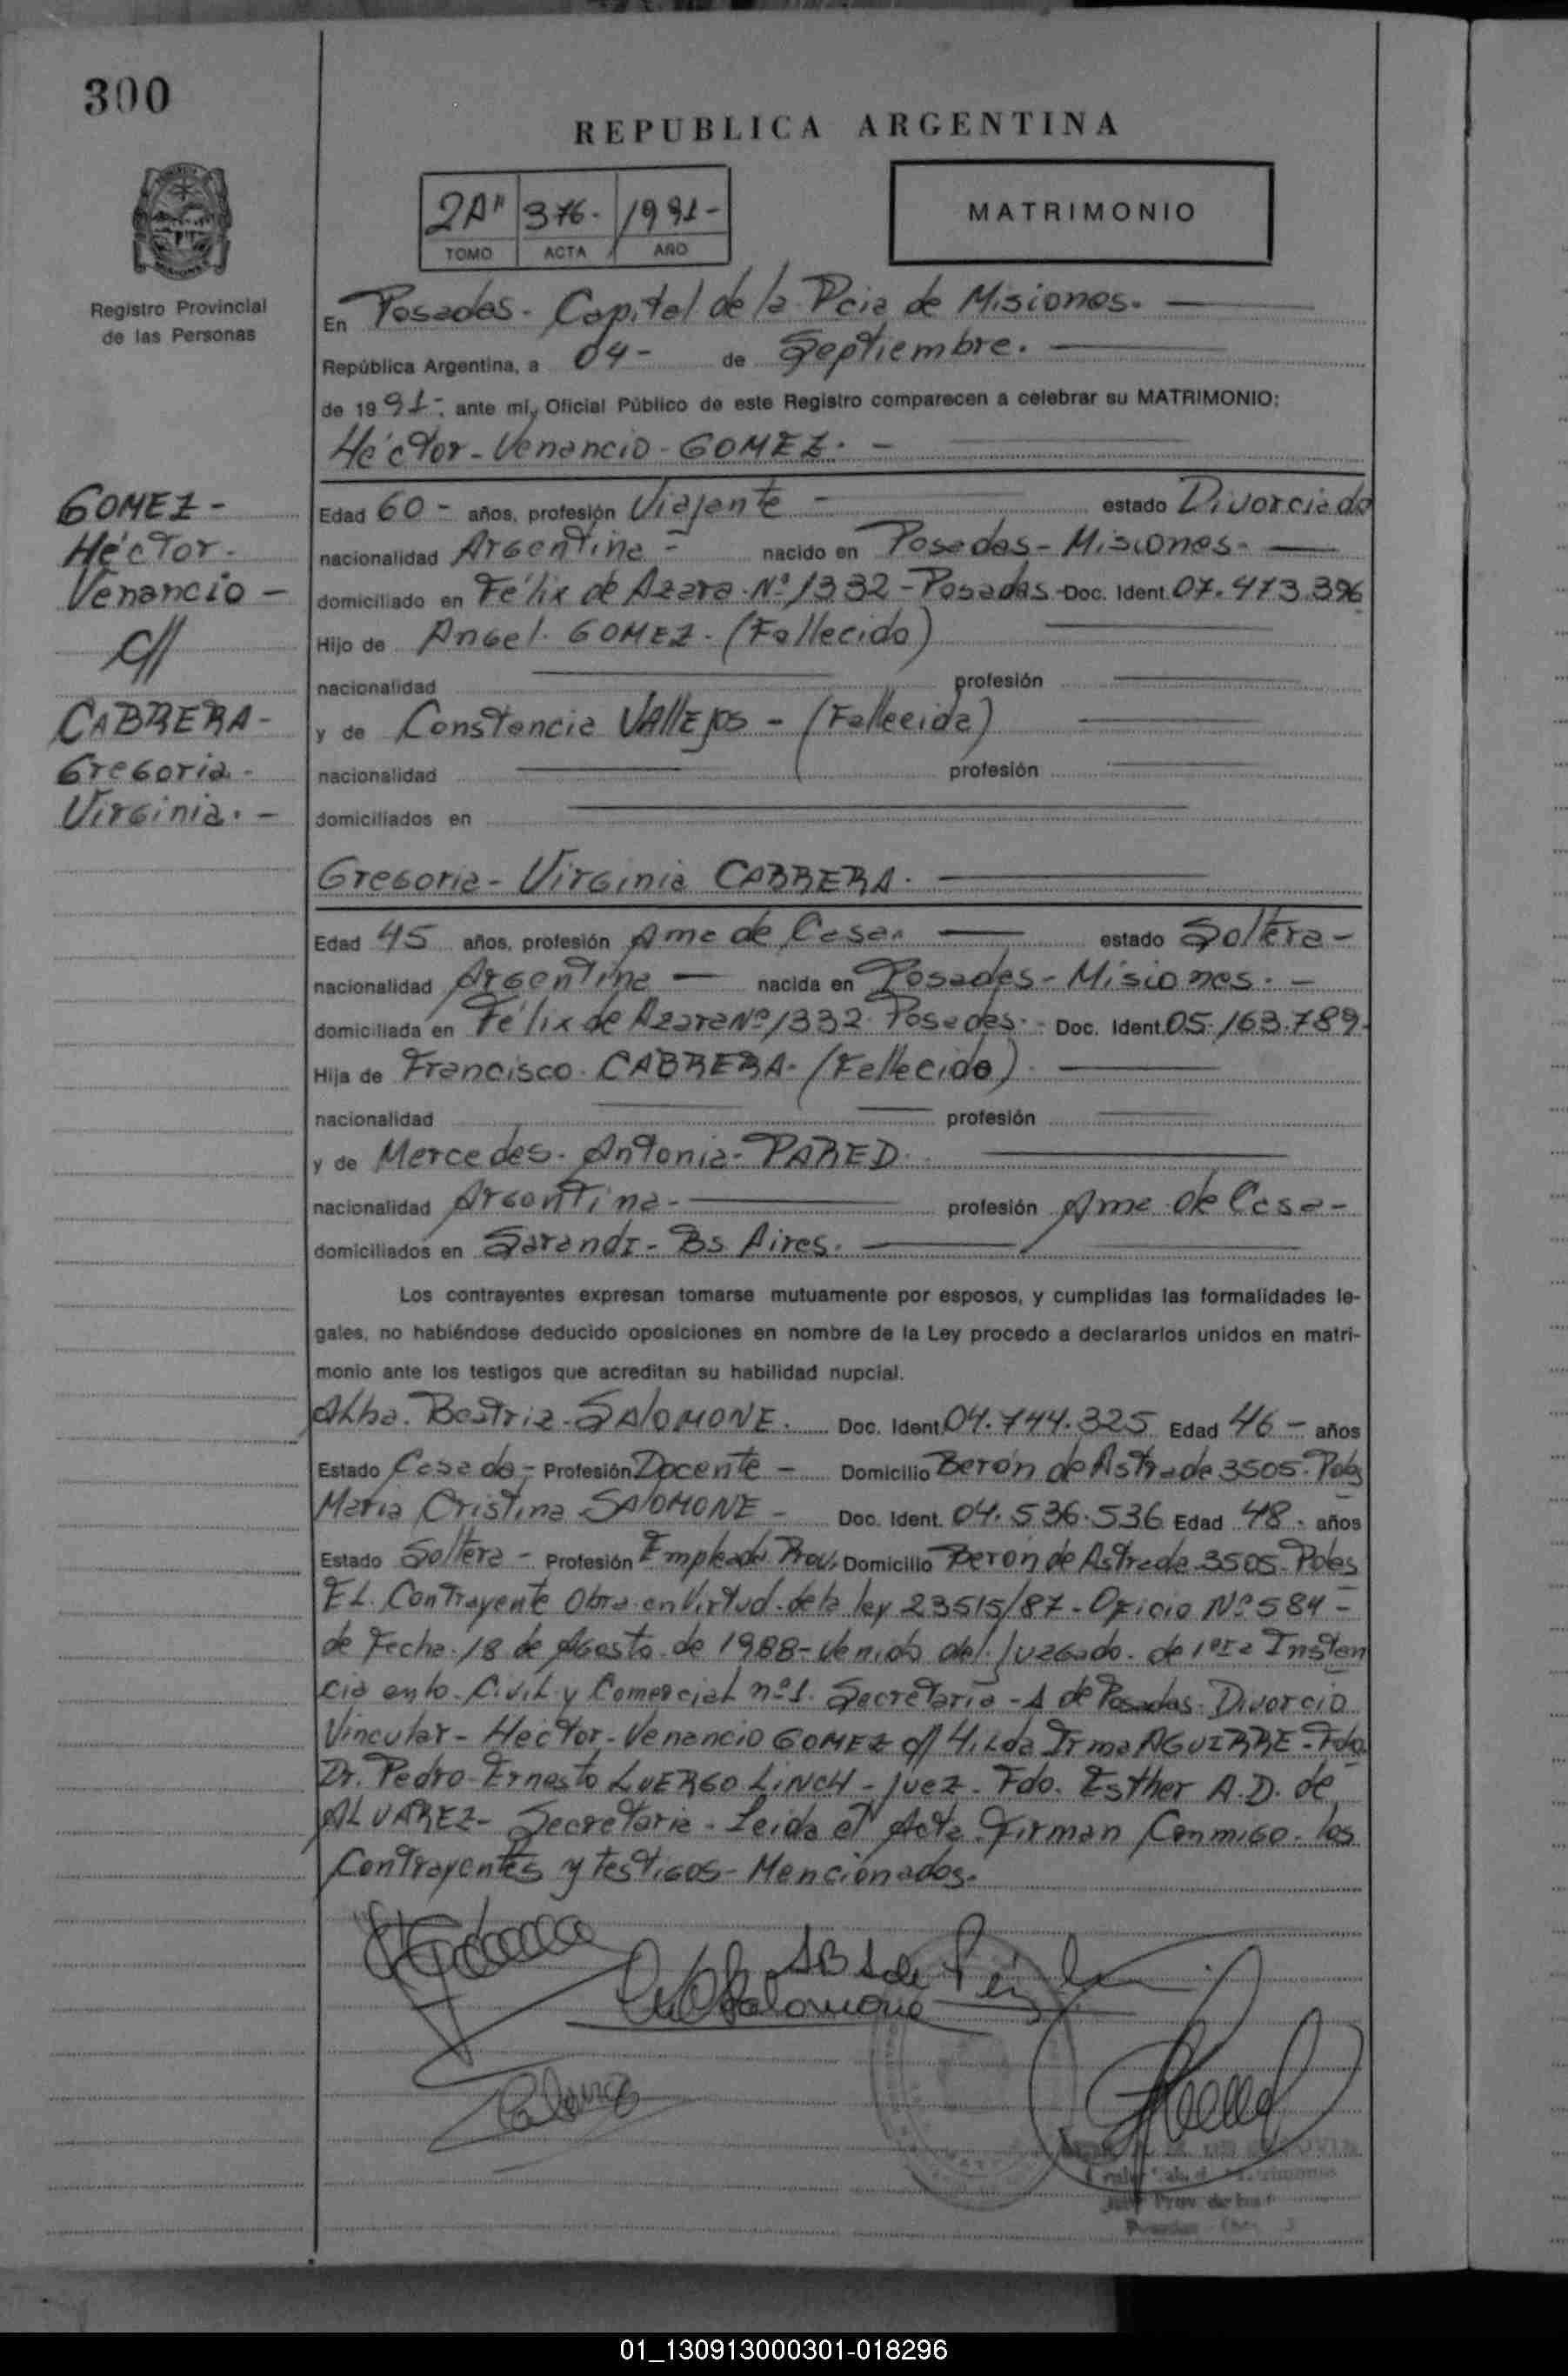 300
REPUBLICA ARGENTINA
2A" 376- 1991-
TOMO ACTA AÑO
MATRIMONIO
Registro Provincial
de las Personas
En Posadas - Capital de la Pcia de Misiones.
República Argentina, a 04- de Septiembre.
de 1991-, ante mí, Oficial Público de este Registro comparecen a celebrar su MATRIMONIO:
Héctor - Venancio - GOMEZ. -
GOMEZ -
Héctor -
Venancio -
c//
CABRERA -
Gregoria -
Virginia. -
Edad 60 - años, profesión Viajante - estado Divorciado
nacionalidad Argentina - nacido en Posadas - Misiones -
domiciliado en Félix de Azara Nº 1332 - Posadas - Doc. Ident. 07.473.396
Hijo de Angel GOMEZ - (Fallecido)
nacionalidad profesión
y de Constancia VALLEJOS - (Fallecida)
nacionalidad profesión
domiciliados en
Gregoria - Virginia CABRERA.
Edad 45 años, profesión Ama de Casa estado Soltera -
nacionalidad Argentina nacida en Posadas - Misiones. -
domiciliada en Félix de Azara Nº 1332 Posadas - Doc. Ident. 05.163.789.
Hija de Francisco CABRERA - (Fallecido)
nacionalidad profesión
y de Mercedes - Antonia - PARED
nacionalidad Argentina - profesión Ama de Casa -
domiciliados en Sarandí - Bs Aires.
Los contrayentes expresan tomarse mutuamente por esposos, y cumplidas las formalidades le-
gales, no habiéndose deducido oposiciones en nombre de la Ley procedo a declararlos unidos en matri-
monio ante los testigos que acreditan su habilidad nupcial.
Alba. Beatriz - SALOMONE. Doc. Ident. 04.744.325 Edad 46 - años
Estado Casada - Profesión Docente - Domicilio Berón de Astrada 3505 - Pdas
María Cristina SALOMONE - Doc. Ident. 04.536.536 Edad 48. años
Estado Soltera - Profesión Empleada Prov. Domicilio Berón de Astrada 3505 - Pdas
EL Contrayente Obra en Virtud de la ley 23515/87 - Oficio Nº 584 -
de Fecha 18 de Agosto de 1988 - Venido del Juzgado de 1era Instan
cia en lo Civil y Comercial nº 1. Secretaría - A de Posadas. Divorcio
Vincular - Héctor - Venancio GOMEZ c// Hilda Irma AGUIRRE - Fdo.
Dr. Pedro Ernesto LUERGO LINCH - Juez - Fdo. Esther A.D. de
ALVAREZ - Secretaria - Leida el Acta Firman Conmigo los
Contrayentes y testigos - Mencionados.
Salomone
01_130913000301-018296